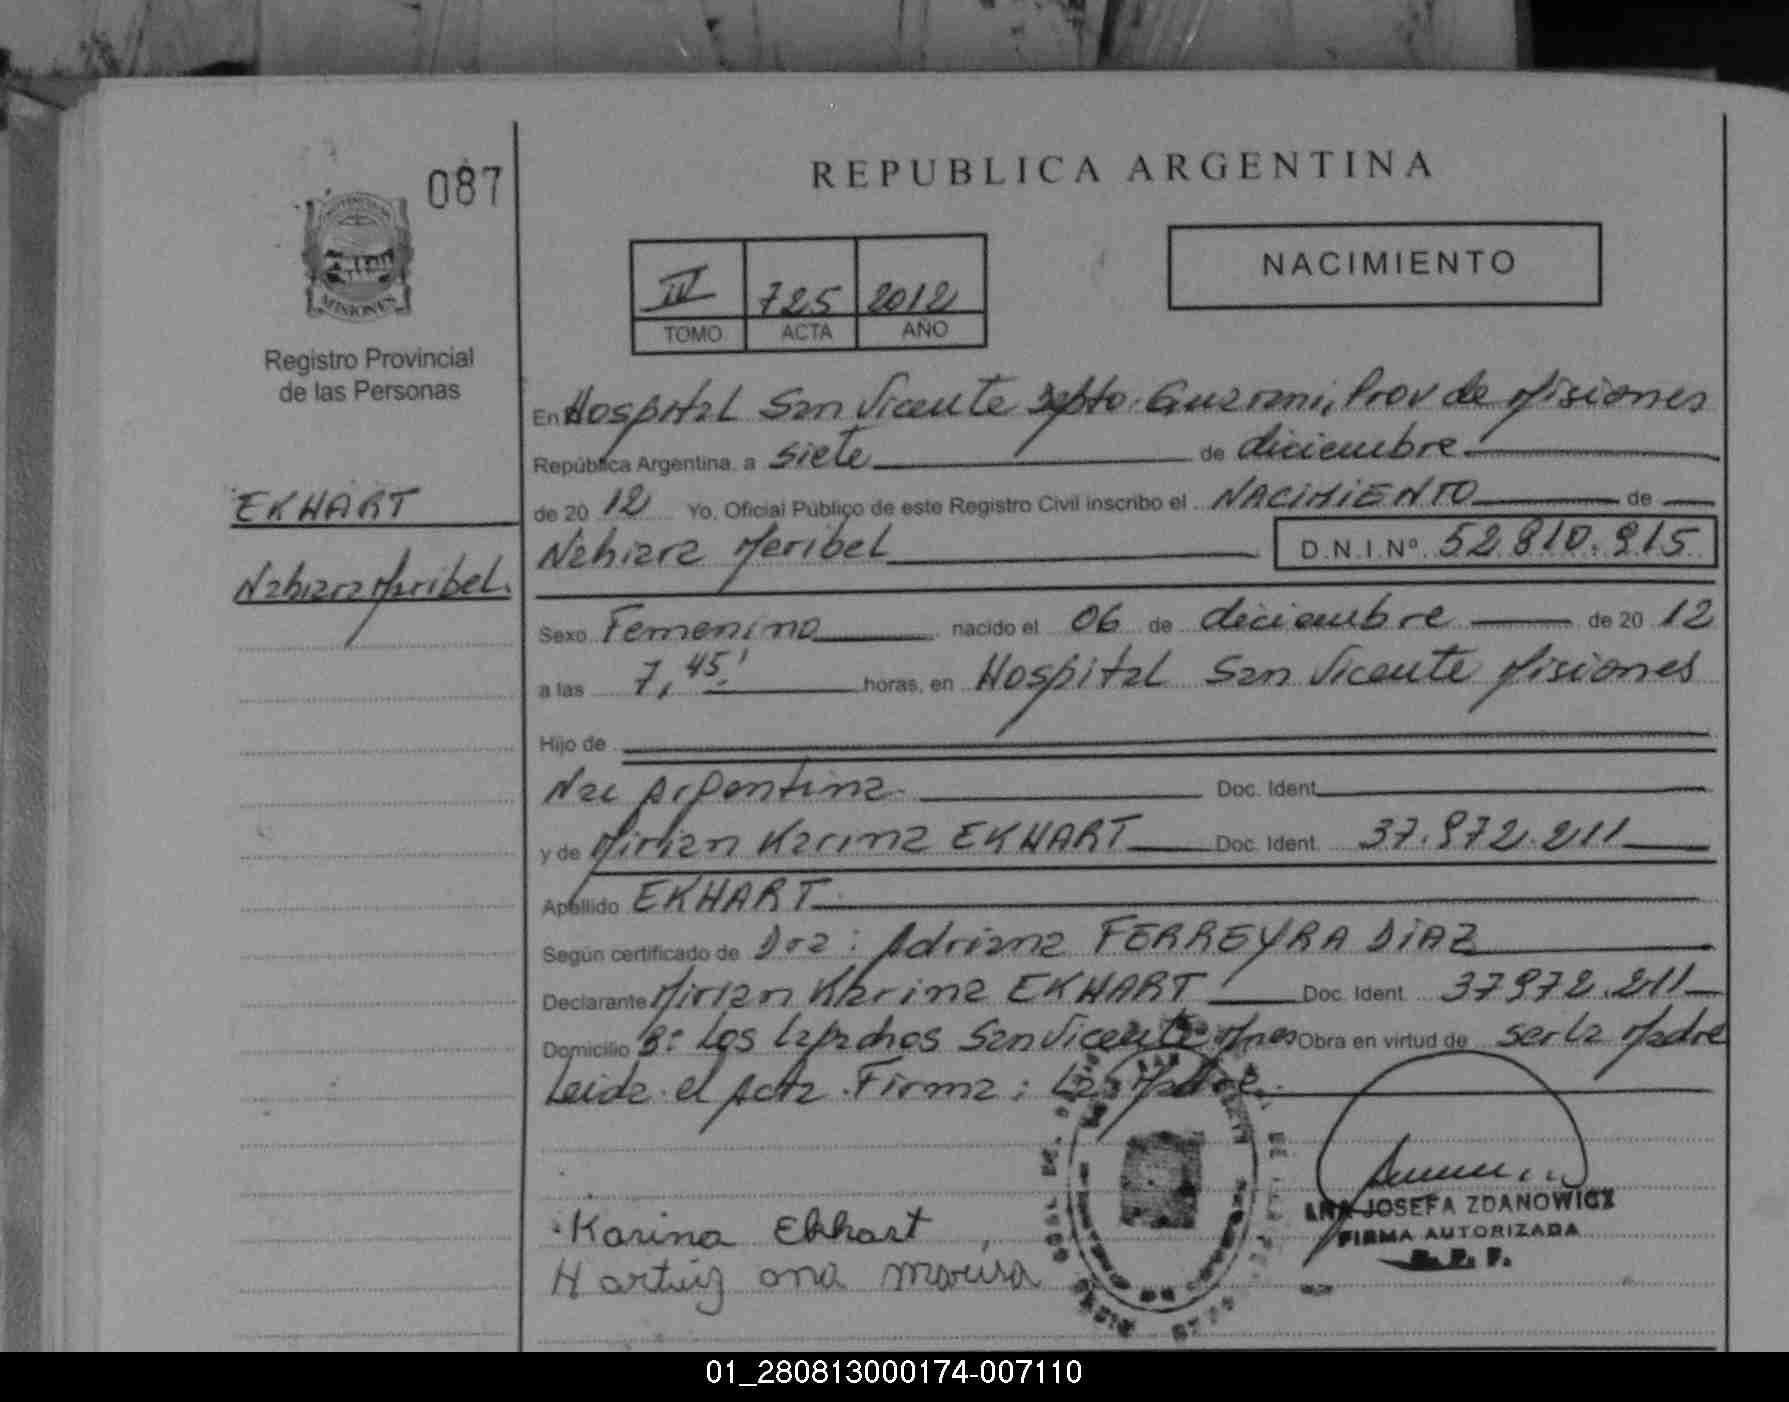 087
REPUBLICA ARGENTINA
MISIONES
NACIMIENTO
IV 725 2012
TOMO ACTA AÑO
Registro Provincial
de las Personas
En Hospital San Vicente Depto. Guarani, Prov de Misiones
República Argentina, a siete de diciembre
EKHART
de 20 12 Yo, Oficial Público de este Registro Civil inscribo el NACIMIENTO de
Nahiara Meribel D.N.I.Nº 52.810.915
Nahiara Meribel.
Sexo Femenino nacido el 06 de diciembre de 20 12
a las 7,45' horas, en Hospital San Vicente Misiones
Hijo de
Nac Argentina Doc. Ident.
y de Mirian Karina EKHART Doc. Ident. 37.972.211
Apellido EKHART
Según certificado de Dra: Adriana FERREYRA DIAZ
Declarante Mirian Karina EKHART Doc. Ident. 37972.211
Domicilio Bº Los Lapachos San Vicente Mnes Obra en virtud de ser la Madre
Leida el Acta Firma: La Madre.
Karina Ekhart
Hartwig ana marisa
ANA JOSEFA ZDANOWICZ
FIRMA AUTORIZADA
R. P. P.
01_280813000174-007110